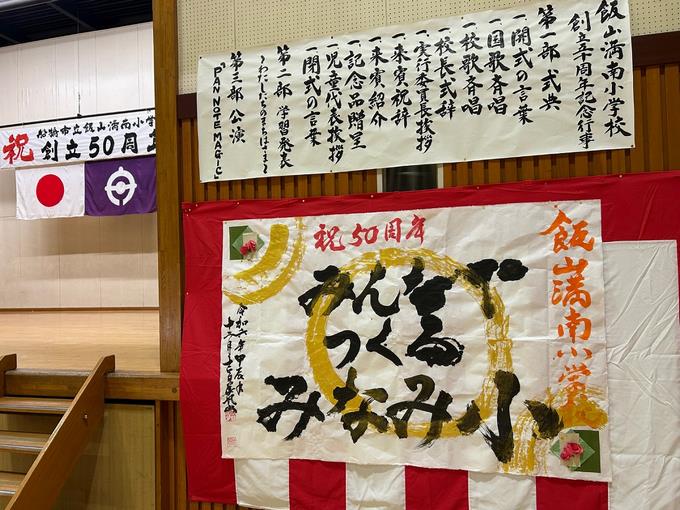 飯山満南小学校
創立五十周年記念行事
第一部 式典
一 開式の言葉
一 国歌斉唱
一 校歌斉唱
一 校長式辞
一 実行委員長挨拶
一 来賓祝辞
一 来賓紹介
一 記念品贈呈
一 児童代表挨拶
一 閉式の言葉
第二部 学習発表
～わたしたちのまちはさま～
第三部 公演
「PAN NOTE MAGIC」
祝
船橋市立飯山満南小学
創立50周
祝50周年
飯山満南小学校
みんなで
つくる
みなみ小
令和六年甲辰年